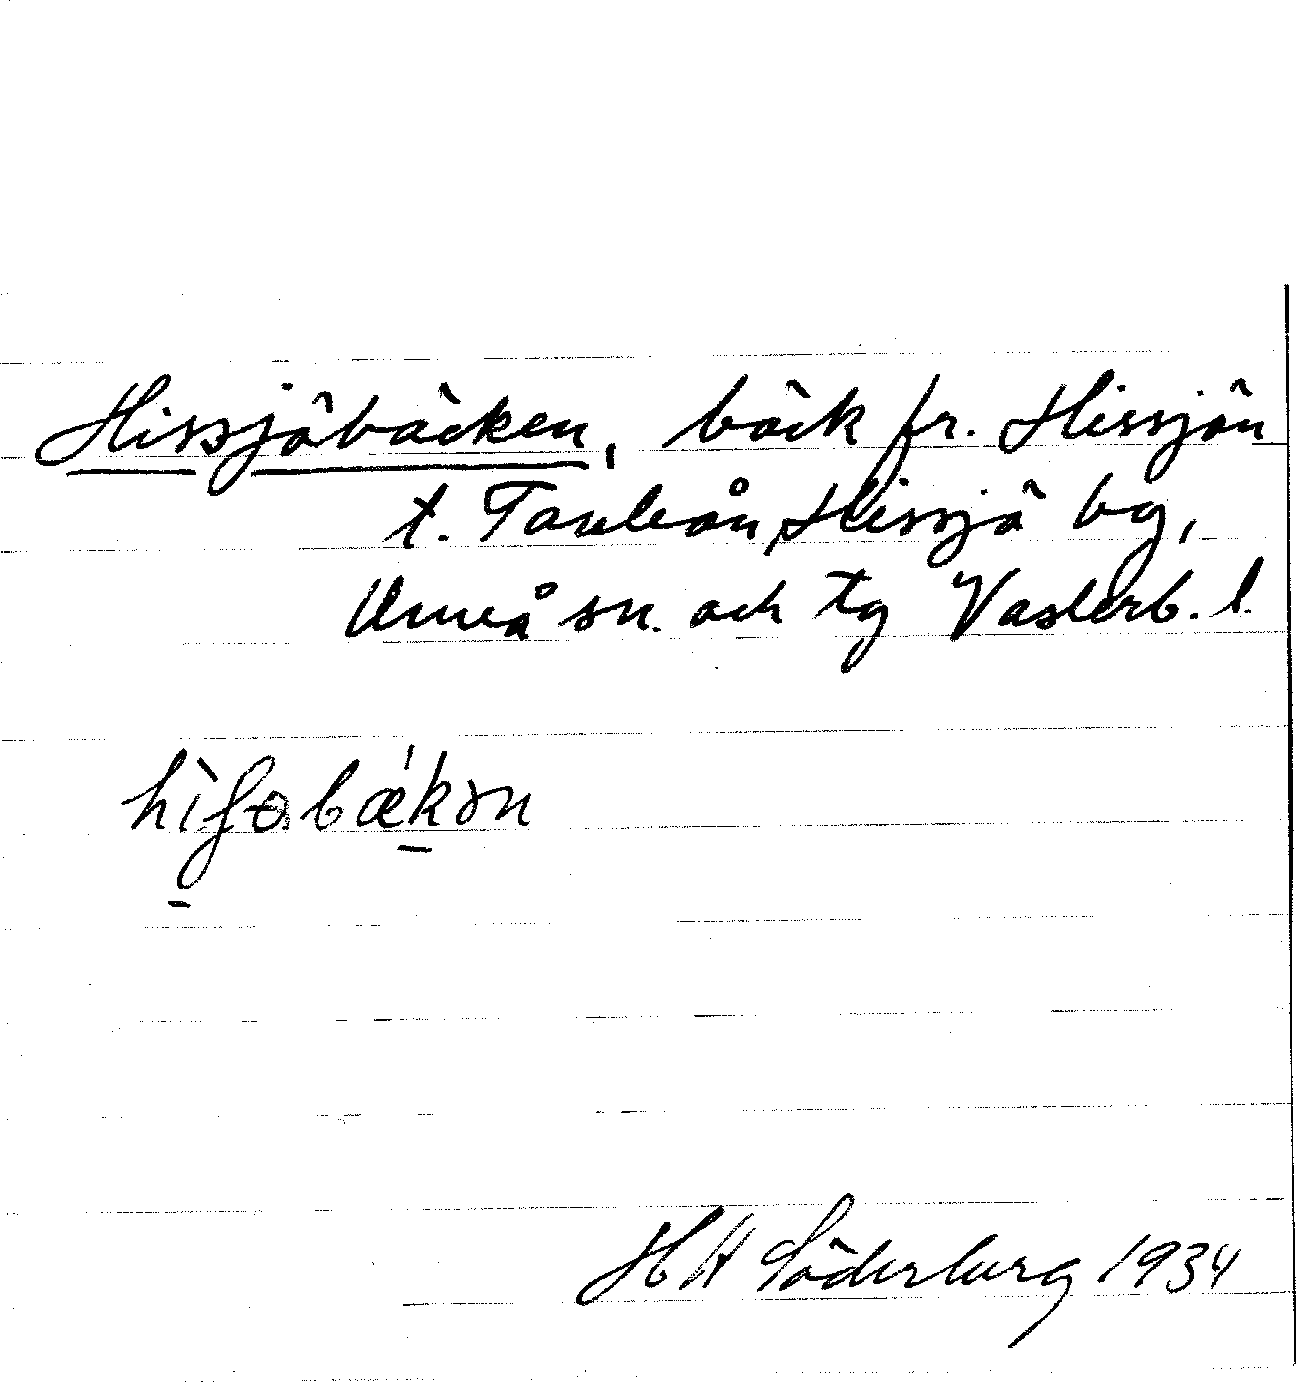 Hissjöbäcken, bäck fr. Hissjön
t. Tavleån, Hissjö by,
Umeå sn. och tg Västerb. l.
hìʃɵbǽkən
H Söderberg 1934